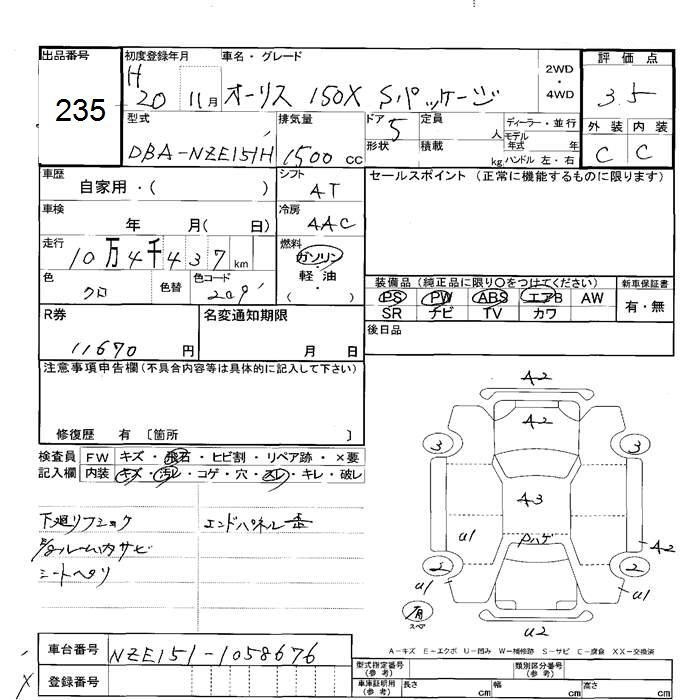 出品番号 初度登録年月 車名・グレード 評価点
235
H 20 11月 オーリス 150X Sパッケージ 2WD ・ 4WD 3.5
型式 排気量 ドア 5 定員 人 ディーラー・並行 外装 内装
DBA-NZE151H 1500 cc 形状 積載 kg モデル年式 年 ハンドル 左・右 C C
車歴 自家用・( ) シフト AT セールスポイント (正常に機能するものに限ります)
車検 年 月( 日) 冷房 AAC
走行 10万4千437km 燃料 ガソリン・軽油・( )
色 クロ 色替 色コード 209
装備品 (純正品に限り〇をつけてください) 新車保証書
PS PW ABS エアB AW 有・無
SR ナビ TV カワ
R券 11670円 名変通知期限 月 日 後日品
注意事項申告欄(不具合内容等は具体的に記入して下さい)
修復歴 有 〔箇所 〕
検査員 FW キズ・飛石・ヒビ割・リペア跡・×要
記入欄 内装 キズ・汚レ・コゲ・穴・スレ・キレ・破レ
下廻リフショク エンドパネル
ルーム内サビ
シートヘタリ
A2
A2
3 3
A3
U1 Pハゲ A2
2 2
U1 U1
有 スペア
U2
A-キズ E-エクボ U-凹み W-補修跡 S-サビ C-腐食 XX-交換済
車台番号 NZE151-1058676
登録番号
型式指定番号(参考) 類別区分番号(参考)
車庫証明用(参考) 長さ cm 幅 cm 高さ cm